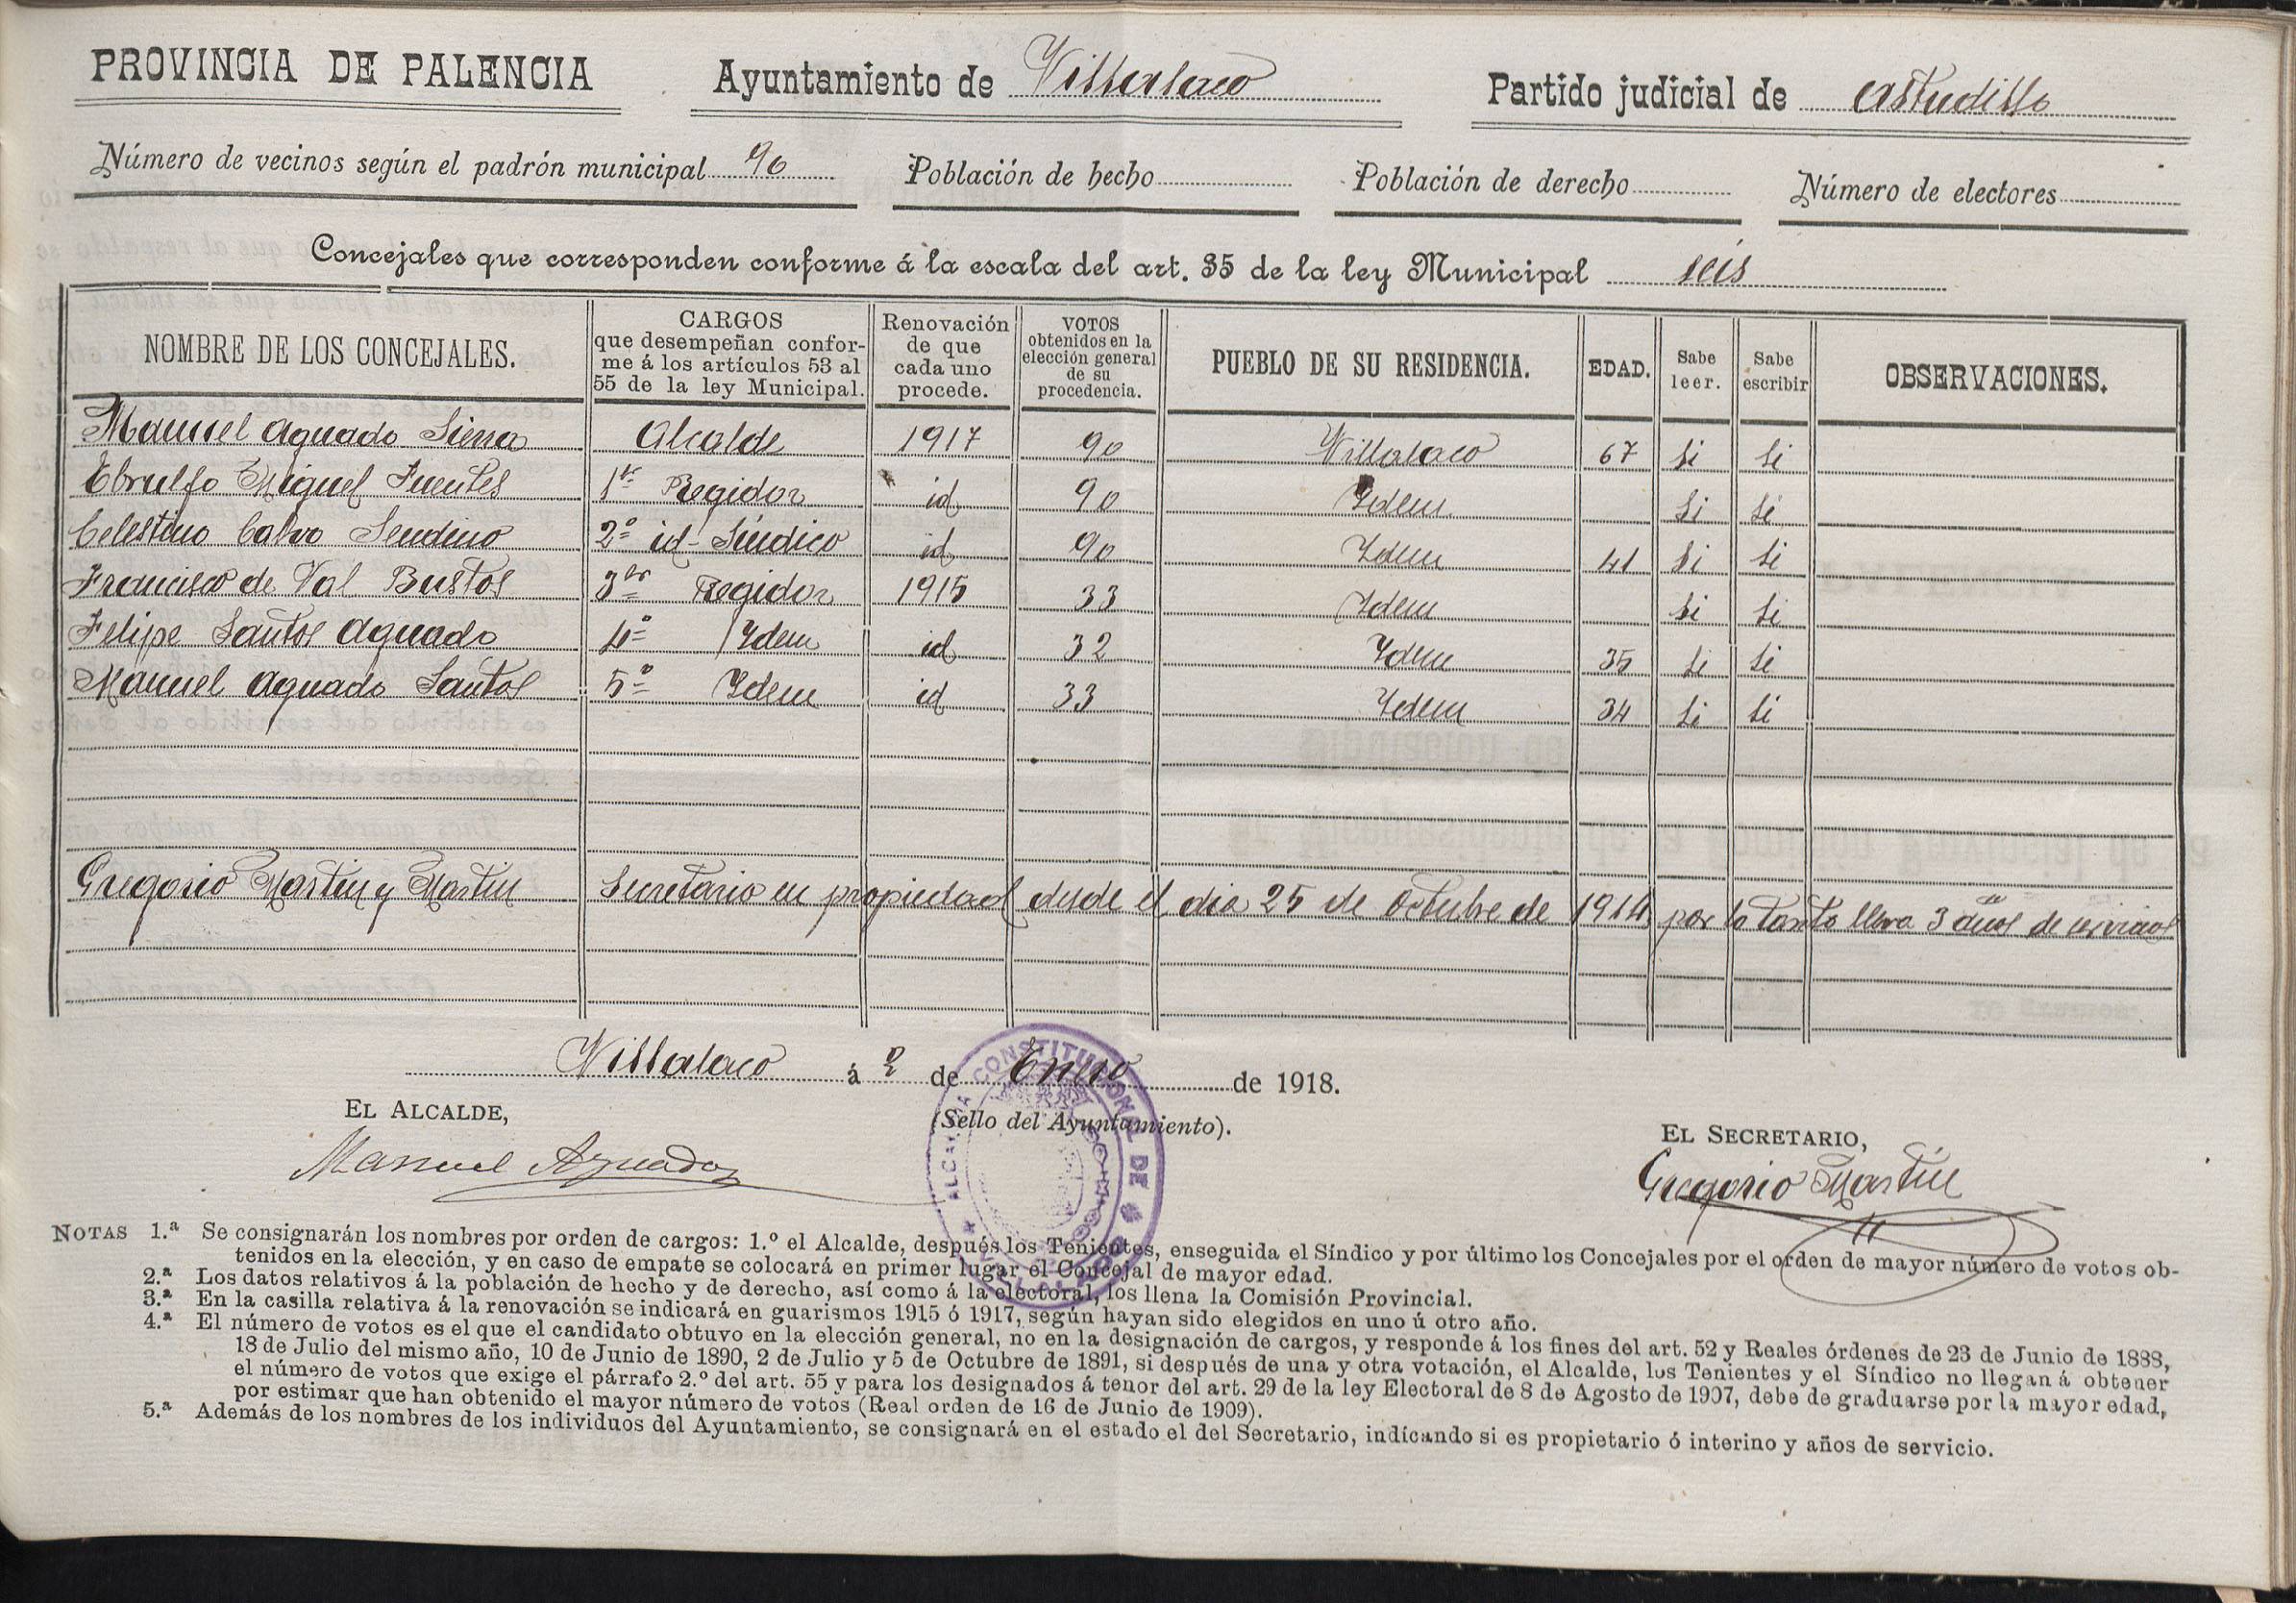 PROVINCIA DE PALENCIA Ayuntamiento de Villalaco Partido judicial de Astudillo
Número de vecinos según el padrón municipal 90 Población de hecho Población de derecho Número de electores
Concejales que corresponden conforme á la escala del art. 35 de la ley Municipal seis
NOMBRE DE LOS CONCEJALES. CARGOS que desempeñan conforme á los artículos 53 al 55 de la ley Municipal. Renovación de que cada uno procede. VOTOS obtenidos en la elección general de su procedencia. PUEBLO DE SU RESIDENCIA. EDAD. Sabe leer. Sabe escribir OBSERVACIONES.
Manuel Aguado Sierra Alcalde 1917 90 Villalaco 67 Si Si
Ebrulfo Miguel Fuentes 1er Regidor id 90 Idem Si Si
Celestino Calvo Sendino 2º id Síndico id 90 Idem 41 Si Si
Francisco de Val Bustos 3er Regidor 1915 33 Idem Si Si
Felipe Santos Aguado 4º Idem id 32 Idem 35 Si Si
Manuel Aguado Santos 5º Idem id 33 Idem 34 Si Si
Gregorio Martin y Martin Secretario en propiedad desde el dia 25 de Octubre de 1914 por lo tanto lleva 3 años de servicios
Villalaco á 2 de Enero de 1918.
EL ALCALDE, (Sello del Ayuntamiento). EL SECRETARIO,
ALCALDIA CONSTITUCIONAL DE
Manuel Aguado Gregorio Martin
NOTAS 1.ª Se consignarán los nombres por orden de cargos: 1.º el Alcalde, después los Tenientes, enseguida el Síndico y por último los Concejales por el orden de mayor número de votos ob-
tenidos en la elección, y en caso de empate se colocará en primer lugar el Concejal de mayor edad.
2.ª Los datos relativos á la población de hecho y de derecho, así como á la electoral, los llena la Comisión Provincial.
3.ª En la casilla relativa á la renovación se indicará en guarismos 1915 ó 1917, según hayan sido elegidos en uno ú otro año.
4.ª El número de votos es el que el candidato obtuvo en la elección general, no en la designación de cargos, y responde á los fines del art. 52 y Reales órdenes de 23 de Junio de 1888,
18 de Julio del mismo año, 10 de Junio de 1890, 2 de Julio y 5 de Octubre de 1891, si después de una y otra votación, el Alcalde, los Tenientes y el Síndico no llegan á obtener
el número de votos que exige el párrafo 2.º del art. 55 y para los designados á tenor del art. 29 de la ley Electoral de 8 de Agosto de 1907, debe de graduarse por la mayor edad,
por estimar que han obtenido el mayor número de votos (Real orden de 16 de Junio de 1909).
5.ª Además de los nombres de los individuos del Ayuntamiento, se consignará en el estado el del Secretario, indicando si es propietario ó interino y años de servicio.